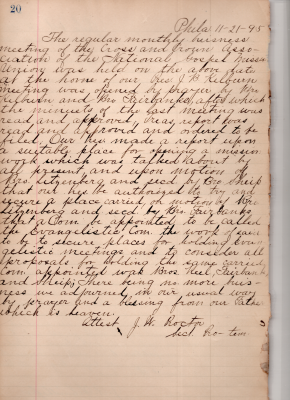 20
Phila 11-21-95
The regular monthly business
meeting of the Cross and Crown Asso-
ciation of the National Gospel Mission
Union was held on the above date
at the home of our Pres. J B Kilburn
meeting was opened by prayer by Mrs
Kilburn and Mr Fairbanks, after which
the minutes of the last meeting was
read and approved, Treas, report was
read and approved and ordered to be
filed. Our Pres made a report upon
a suitable place for opening a mission
work which was talked about
all present, and upon motion of
Mrs and secd by Bro Sheip
that our be authorised to try and
secure a place carried, on motion by Mrs
and secd by Mr Fairbanks
that a Com be appointed to be called
the Evangelistic Com the work of same
to be to secure places for holding Evan-
gelistic meetings and to consider all
proposals for holding the same carried,
Com, appointed was Bros Fairbanks
and Sheip, There being no more busi-
ness we adjourned in our usual way
by prayer and a blessing from our Father
which is heaven.
Attest J. W. Proctor
Sect Pro-tem